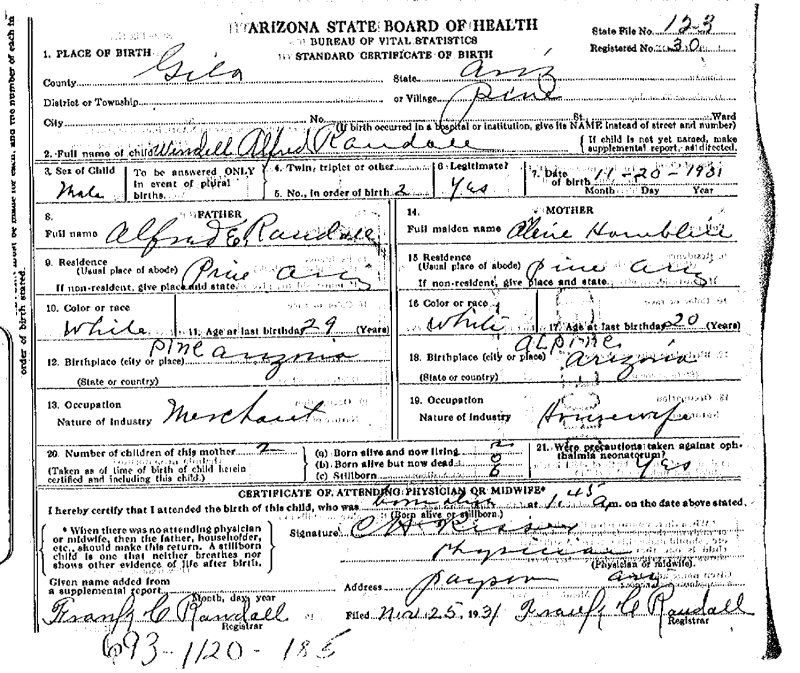 ARIZONA STATE BOARD OF HEALTH
BUREAU OF VITAL STATISTICS
STANDARD CERTIFICATE OF BIRTH
State File No. 123
Registered No. 30
1. PLACE OF BIRTH
County Gila State Ariz
District or Township or Village Pine
City No. St. Ward
(If birth occurred in a hospital or institution, give its NAME instead of street and number)
2. Full name of child Windell Alfred Randall { If child is not yet named, make supplemental report, as directed.
3. Sex of Child Male
To be answered ONLY in event of plural births.
4. Twin, triplet or other
5. No., in order of birth 2
6 Legitimate? Yes
7. Date of birth 11-20-1931
Month Day Year
8. FATHER
Full name Alfred E. Randall
14. MOTHER
Full maiden name
9. Residence (Usual place of abode) Pine Ariz
If non-resident, give place and state.
15 Residence (Usual place of abode) Pine Ariz
If non-resident, give place and state.
10. Color or race White
11. Age at last birthday 29 (Years)
16 Color or race White
17. Age at last birthday 20 (Years)
12. Birthplace (city or place) Pine Arizonia
(State or country)
18. Birthplace (city or place) Alpine, Arizonia
(State or country)
13. Occupation
Nature of Industry Merchant
19. Occupation
Nature of Industry Housewife
20. Number of children of this mother 2
(Taken as of time of birth of child herein certified and including this child.)
(a) Born alive and now living 2
(b) Born alive but now dead 0
(c) Stillborn 0
21. Were precautions taken against ophthalmia neonatorum? Yes
CERTIFICATE OF ATTENDING PHYSICIAN OR MIDWIFE*
I hereby certify that I attended the birth of this child, who was born alive at 1 45 a.m. on the date above stated.
(Born alive or stillborn.)
* When there was no attending physician or midwife, then the father, householder, etc., should make this return. A stillborn child is one that neither breathes nor shows other evidence of life after birth.
Signature
Physician
(Physician or midwife).
Given name added from a supplemental report
Month, day, year
Address Payson Ariz
Frank C Randall
Registrar
Filed Nov 25, 1931 Frank C Randall
Registrar
693-1120-185
order of birth stated.